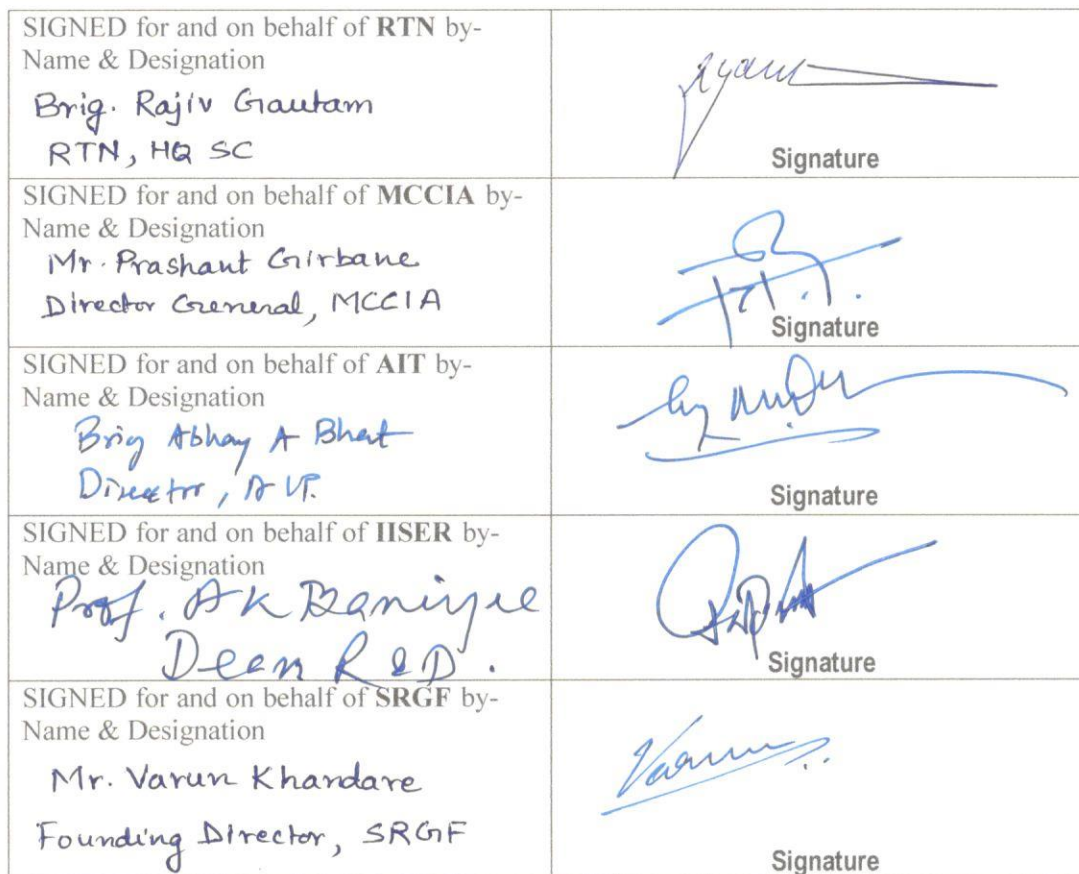 SIGNED for and on behalf of RTN by-
Name & Designation
Brig. Rajiv Gautam
RTN, HQ SC
Signature
SIGNED for and on behalf of MCCIA by-
Name & Designation
Mr. Prashant Girbane
Director General, MCCIA
Signature
SIGNED for and on behalf of AIT by-
Name & Designation
Brig Abhay A Bhat
Director, AIT.
Signature
SIGNED for and on behalf of IISER by-
Name & Designation
Prof. AK Banerjee
Dean R&D.
Signature
SIGNED for and on behalf of SRGF by-
Name & Designation
Mr. Varun Khandare
Founding Director, SRGF
Varun
Signature